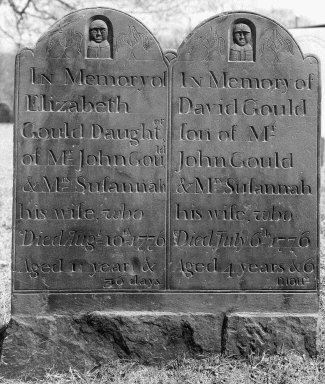 In Memory of
Elizabeth
Gould Daught.er
of Mr. John Gould
& Mrs. Suſannah
his wife, who
Died Augt. 10th 1776
Aged 11 years &
days
In Memory of
David Gould
ſon of Mr.
John Gould
& Mrs. Suſannah
his wife, who
Died July 6th 1776
Aged 4 years & 6
mont.s